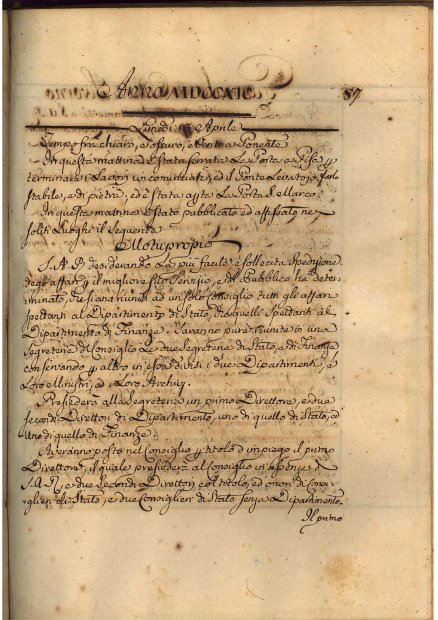 Anno MDCCXIC
87
Lunedi Aprile
Tempo fra chiaro, e oscuro, e Vento a Ponente
In questa mattina è stata serrata La Porta a Pisa p
terminare i Lavori incominciati, ed il Ponte Levatojo
stabile, e di pietra, ed è stata apta La Porta S. Marco.
In questa mattina è stato pubblicato ed affissato ne
soliti Luoghi il seguente
Motuproprio
S. A. R. desiderando La più facile, e sollecita Spedizione
degl'affari, e il migliore Servizio, e del Pubblico ha deter=
minato, che siano riuniti ad un solo Consiglio tutti gl'affari
spettanti al Dipartimento di Stato, da quelli Spettanti al
Dipartimento di Finanze. Saranno pure riunite in una
Segreteria di Consiglio Le due Segreterie di Stato, e di Finanze
conservando p altro in essa divisi i due Dipartimenti, e
Loro Ministri, ed i Loro Archivj.
Presiederà alla Segreteria un primo Direttore, e due
secondi Direttori di Dipartimento, uno di quello di Stato, ed
uno di quello di Finanze.
Averanno posto nel Consiglio p titolo d'impiego il primo
Direttore, il quale presiederà al Consiglio in assenza di
S. A. R., e i due Secondi Direttori col titolo, ed onori di Consi=
glieri di Stato, e due Consiglieri di Stato senza Dipartimento.
Il primo